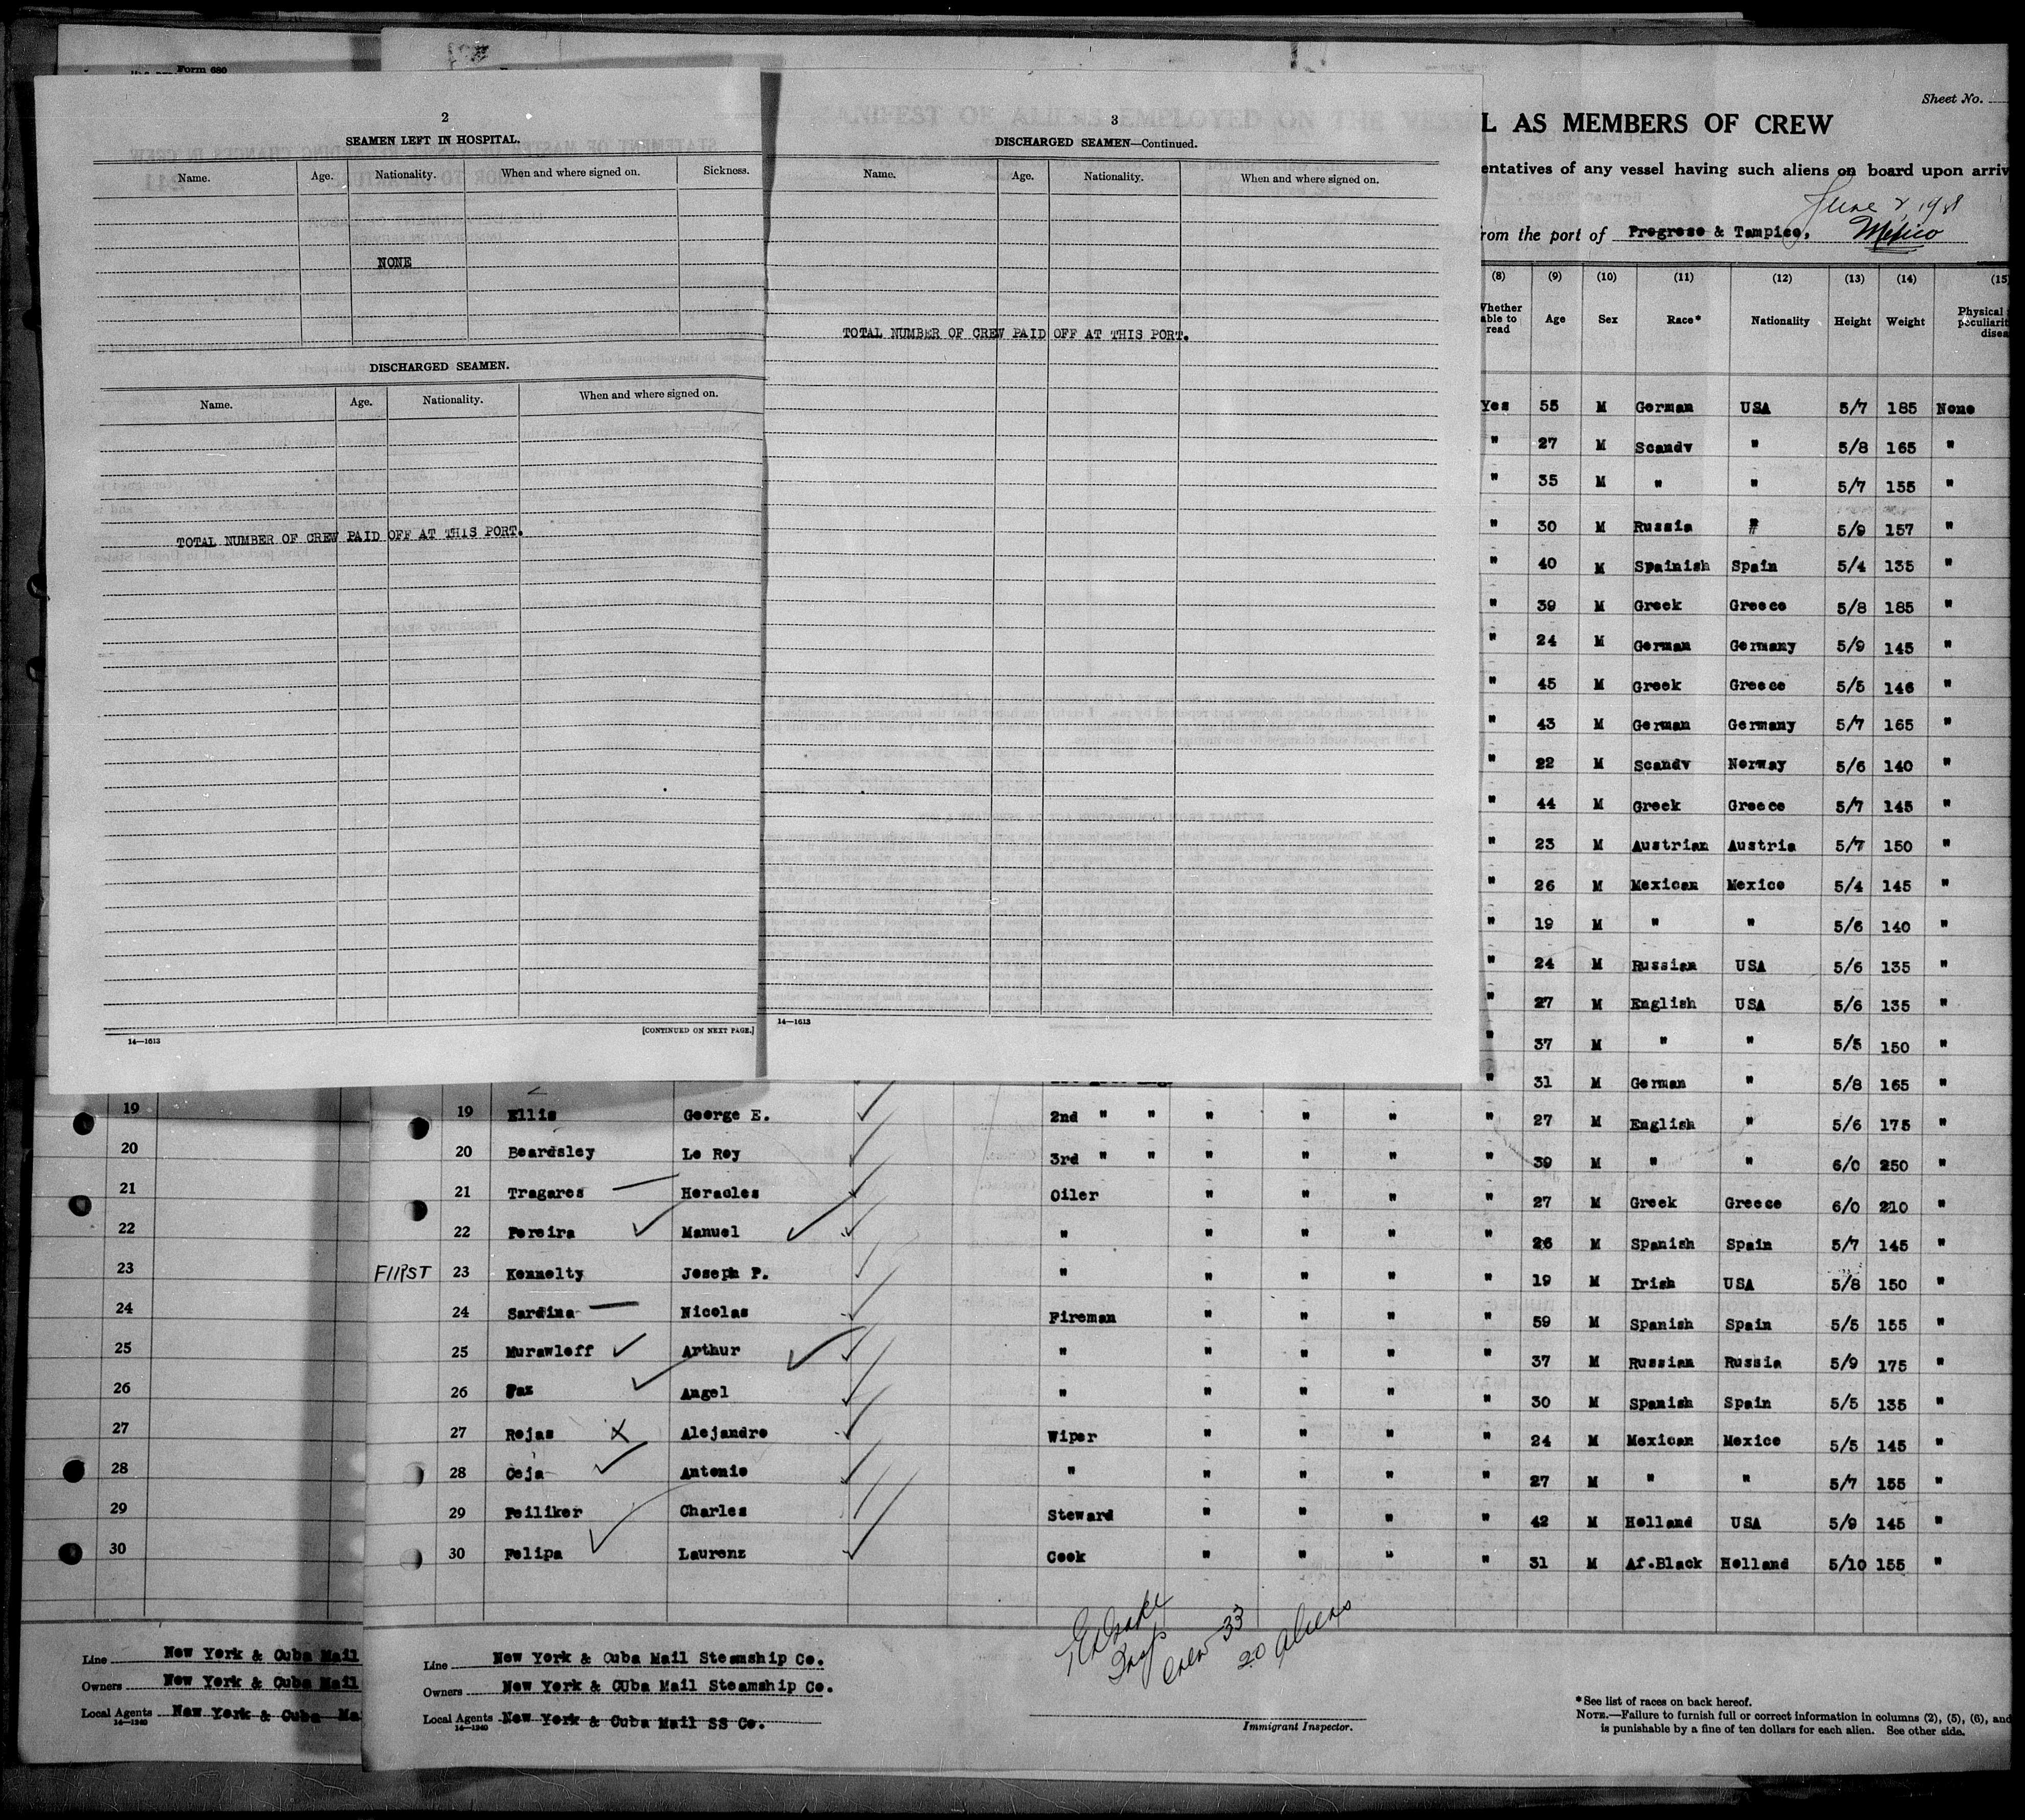 Form 680
2
SEAMEN LEFT IN HOSPITAL.
Name. Age. Nationality. When and where signed on. Sickness.
NONE
DISCHARGED SEAMEN.
Name. Age. Nationality. When and where signed on.
TOTAL NUMBER OF CREW PAID OFF AT THIS PORT.
[CONTINUED ON NEXT PAGE.]
14—1613
3
DISCHARGED SEAMEN—Continued.
Name. Age. Nationality. When and where signed on.
TOTAL NUMBER OF CREW PAID OFF AT THIS PORT.
14—1613
Sheet No.
L AS MEMBERS OF CREW
entatives of any vessel having such aliens on board upon arriv
June 2, 1931
rom the port of Progreso & Tampico, Mexico
(8) (9) (10) (11) (12) (13) (14) (15
Whether able to read Age Sex Race* Nationality Height Weight Physical peculiarit disea
Yes 55 M German USA 5/7 185 None
" 27 M Scandv " 5/8 165 "
" 35 M " " 5/7 155 "
" 30 M Russia " 5/9 157 "
" 40 M Spainish Spain 5/4 135 "
" 39 M Greek Greece 5/8 185 "
" 24 M German Germany 5/9 145 "
" 45 M Greek Greece 5/5 146 "
" 43 M German Germany 5/7 165 "
" 22 M Scandv Norway 5/6 140 "
" 44 M Greek Greece 5/7 145 "
" 23 M Austrian Austria 5/7 150 "
" 26 M Mexican Mexico 5/4 145 "
" 19 M " " 5/6 140 "
" 24 M Russian USA 5/6 135 "
" 27 M English USA 5/6 135 "
" 37 M " " 5/5 150 "
" 31 M German " 5/8 165 "
19 19 Ellis George E. 2nd " " " " " " 27 M English " 5/6 175 "
20 20 Beardsley Le Roy 3rd " " " " " " 39 M " " 6/0 250 "
21 21 Tragares Heracles Oiler " " " " 27 M Greek Greece 6/0 210 "
22 22 Pereira Manuel " " " " " 26 M Spanish Spain 5/7 145 "
23 FIIRST 23 Kennelty Joseph P. " " " " " 19 M Irish USA 5/8 150 "
24 24 Sardina Nicolas Fireman " " " " 59 M Spanish Spain 5/5 155 "
25 25 Murawleff Arthur " " " " " 37 M Russian Russia 5/9 175 "
26 26 Paz Angel " " " " " 30 M Spanish Spain 5/5 135 "
27 27 Rojas X Alejandro Wiper " " " " 24 M Mexican Mexico 5/5 145 "
28 28 Ceja Antonio " " " " " 27 M " " 5/7 155 "
29 29 Peiliker Charles Steward " " " " 42 M Holland USA 5/9 145 "
30 30 Felipa Laurenz Cook " " " " 31 M Af.Black Holland 5/10 155 "
Line New York & Cuba Mail
Owners New York & Cuba Mail
Local Agents New York & Cuba Ma
14—1240
Line New York & Cuba Mail Steamship Co.
Owners New York & CUba Mail Steamship Co.
Local Agents New York & Cuba Mail SS Co.
14—1240
Insp
Crew 33
20 aliens
Immigrant Inspector.
*See list of races on back hereof.
NOTE.—Failure to furnish full or correct information in columns (2), (5), (6), and
is punishable by a fine of ten dollars for each alien. See other side.